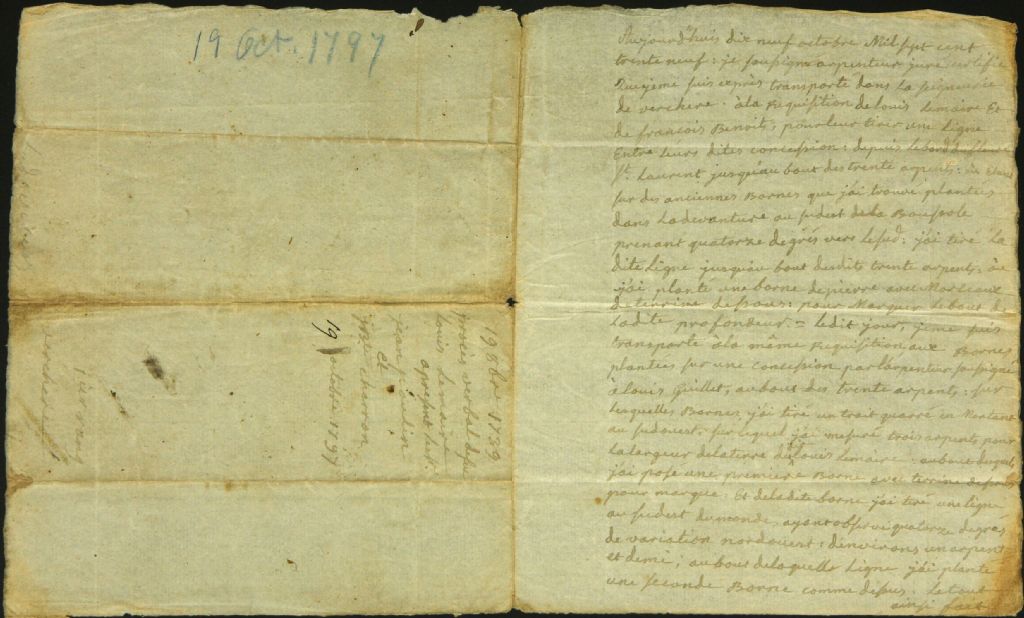 19 Oct. 1797
19 8bre 1739
procès verbal de
Louis Lemaire
apresent
jean
et
charron
19 octobre 1797
vercheres
Aujourd'huis dix neuf octobre Mil sept cent
trente neuf: je soussigné arpenteur juré certifie
Que jeme suis exprès transporte dans la seigneurie
de verchere. àla Requisition de louis lemaire Et
de francois Benoits, pour leur tirer une Ligne
Entre leurs dites concession: depuis lebord du fleuve
St. Laurent jusqu'au bout des trente arpents:
sur des anciennes Bornes que j'ai trouvé plantées
dans la devanture au sudest dela Boussole
prenant quatorze degrés vers lesud: j'ai tiré La
dite Ligne jusqu'au bout desdits trente arpents, où
j'ai planté une borne depierre avec Morceaux
deterrine dessous: pour Marquer lebout de
Ladite profondeur = Ledit jour, jeme suis
transporte àla même Requisition aux Bornes
plantées sur une concession par l'arpenteur soussigné
à louis Guillet, aubout des trente arpents, sur
lesquelles Bornes j'ai tiré un trait quarré en
au sudouest, sur lequel j'ai mesuré trois arpents pour
la largeur delaterre de louis lemaire: aubout desquels
j'ai posé une premiere Borne avec terrine dessous
pour marque. Et deladite borne j'ai tiré une ligne
au sudest dumonde, ayant observé quatorze degrés
de variation nordouest: d'environs un arpent
et demi, au bout delaquelle Ligne j'ai planté
une seconde Borne comme dessus. Letout
ainsi fait